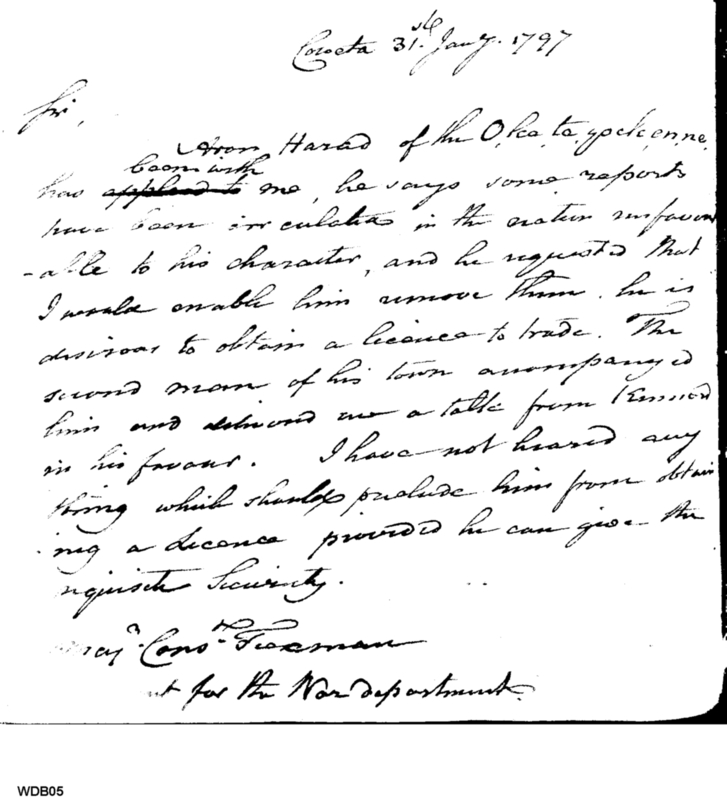 Coweta 31st. Jany. 1797
Sir,
Aron Harad of the O,kee,te,yockenne
been with
has applied to me, he says some reports
have been irculated in the nation unfavour
-able to his character, and he requested that
I would enable him remove them. he is
desirous to obtain a licence to trade. The
second man of his town accompanyed
him and delivered me a talk from Kennard
in his favour. I have not heared any
thing which should preclude him from obtain
ing a Licence provided he can give the
requisite Security.
Const. Freeman
for the War department.
WDB05